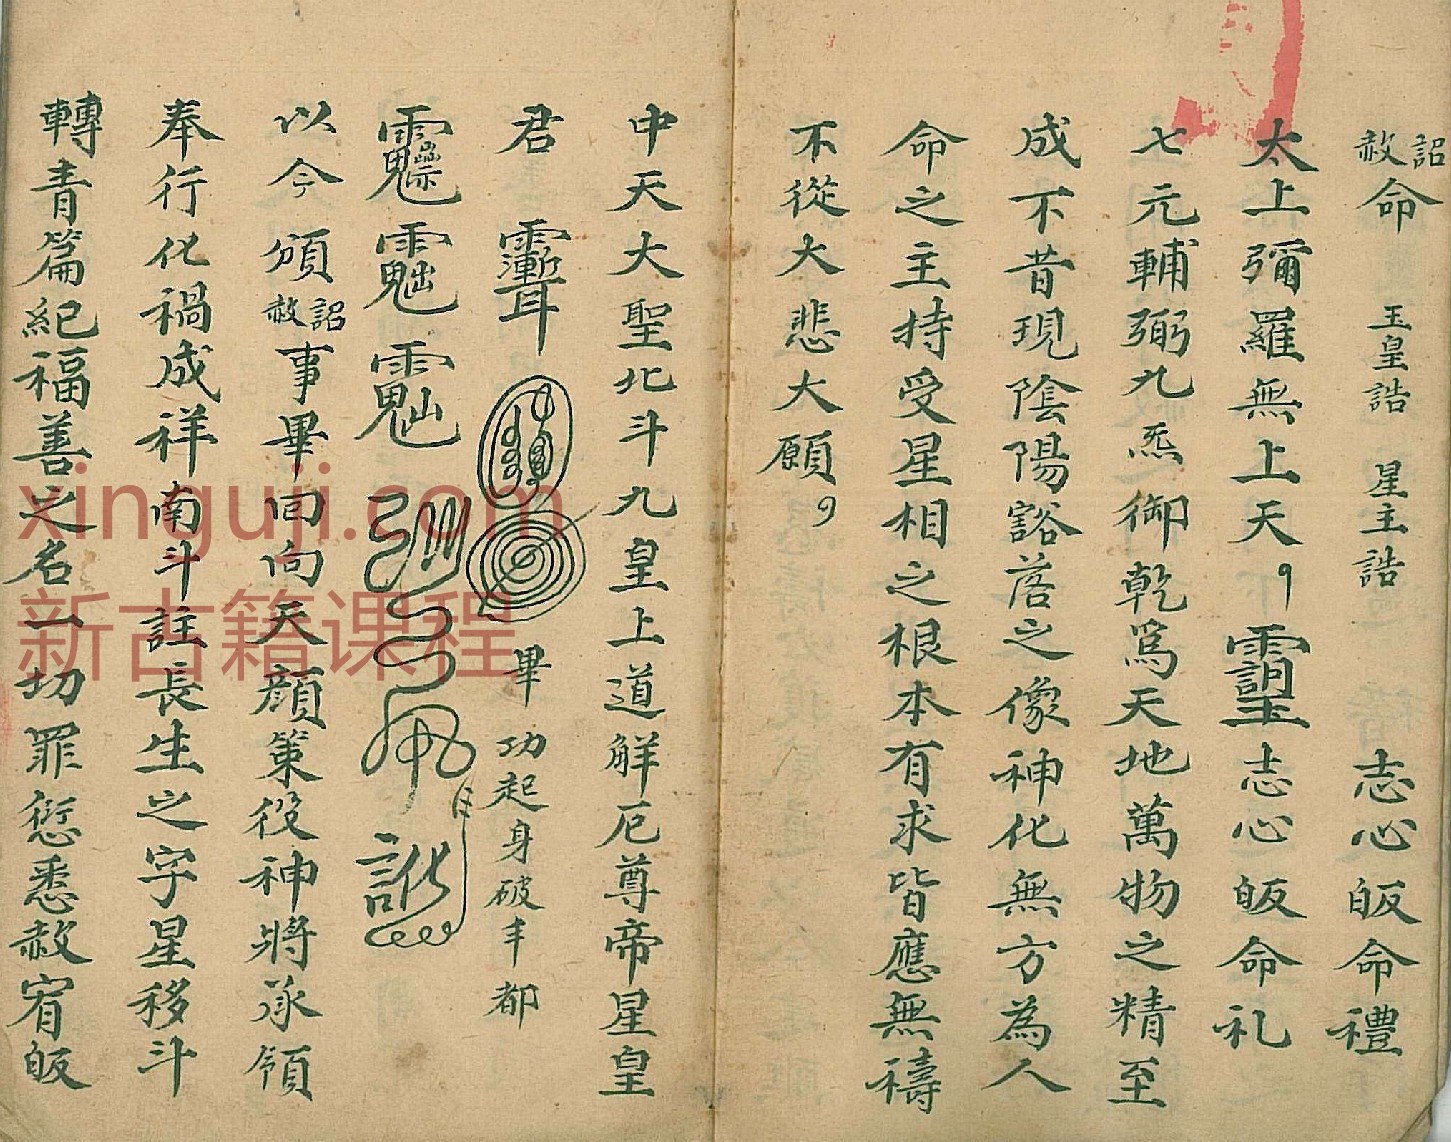 詔赦命　玉皇誥　星主誥　志心皈命禮
太上彌羅無上天　志心皈命礼
七元輔弼九炁御乾爲天地萬物之精至
成不昔現陰陽豁落之像神化無方為人
命之主持受星相之根本有求皆應無禱
不從大悲大願
中天大聖北斗九皇上道解厄尊帝星皇
君　畢功起身破丰都
以今頒詔赦事畢回向天顔策役神將承領
奉行化禍成祥南斗註長生之字星移斗
轉青篇紀福善之名一切罪愆悉赦宥皈
xinguji.com
新古籍课程